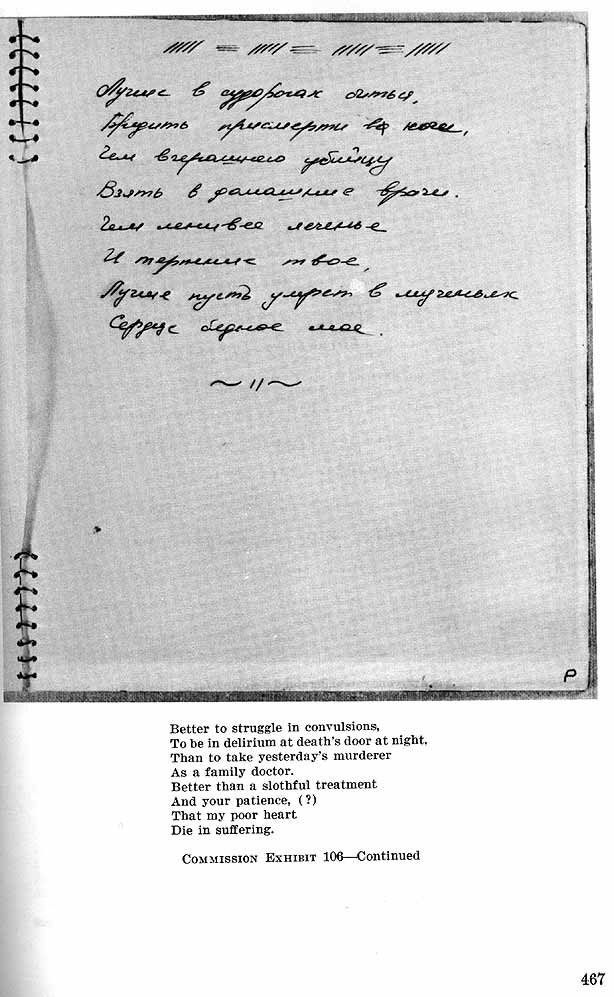 Лучше в судорогах биться,
Бредить присмерти в ночи,
Чем вчерашнего убийцу
Взять в домашние врачи.
Чем ленивее леченье
И терпение твое,
Лучше пусть умрет в мученьях
Сердце бедное мое.
P
Better to struggle in convulsions,
To be in delirium at death's door at night,
Than to take yesterday's murderer
As a family doctor.
Better than a slothful treatment
And your patience, (?)
That my poor heart
Die in suffering.
COMMISSION EXHIBIT 106—Continued
467